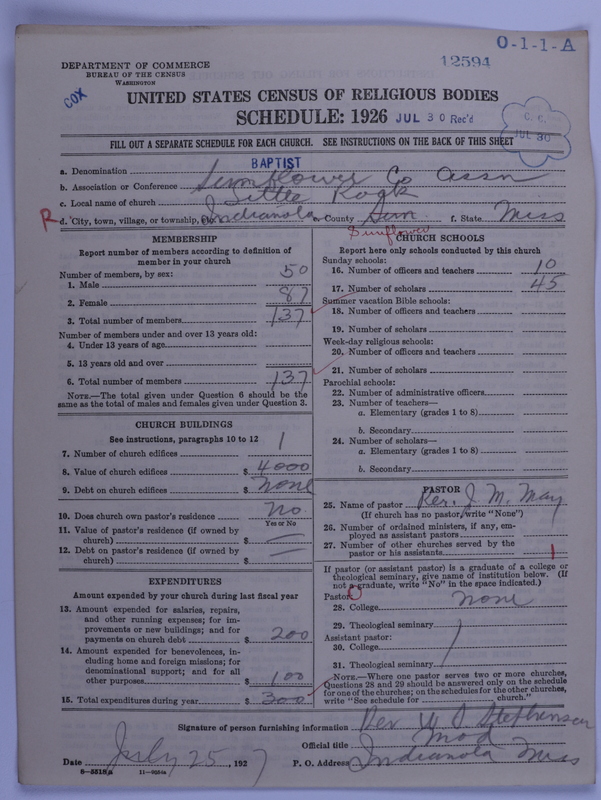 O-1-1-A
12594
DEPARTMENT OF COMMERCE
BUREAU OF THE CENSUS
WASHINGTON
COX
UNITED STATES CENSUS OF RELIGIOUS BODIES
SCHEDULE: 1926 JUL 30 Rec'd
C. C. JUL 30
FILL OUT A SEPARATE SCHEDULE FOR EACH CHURCH. SEE INSTRUCTIONS ON THE BACK OF THIS SHEET
a. Denomination BAPTIST
b. Association or Conference Sunflower Co Assn
c. Local name of church Little Rock
R d. City, town, village, or township, etc. Indianola e. County Sun f. State Miss
Sunflower
MEMBERSHIP
Report number of members according to definition of
member in your church
Number of members, by sex:
1. Male 50
2. Female 87
3. Total number of members 137
Number of members under and over 13 years old:
4. Under 13 years of age
5. 13 years old and over
6. Total number of members 137
NOTE.—The total given under Question 6 should be the
same as the total of males and females given under Question 3.
CHURCH BUILDINGS
See instructions, paragraphs 10 to 12
7. Number of church edifices 1
8. Value of church edifices $ 4000
9. Debt on church edifices $ none
10. Does church own pastor's residence No
Yes or No
11. Value of pastor's residence (if owned by
church) $ —
12. Debt on pastor's residence (if owned by
church) $ —
EXPENDITURES
Amount expended by your church during last fiscal year
13. Amount expended for salaries, repairs,
and other running expenses; for im-
provements or new buildings; and for
payments on church debt $ 200
14. Amount expended for benevolences, in-
cluding home and foreign missions; for
denominational support; and for all
other purposes $ 100
15. Total expenditures during year $ 300
CHURCH SCHOOLS
Report here only schools conducted by this church
Sunday schools:
16. Number of officers and teachers 10
17. Number of scholars 45
Summer vacation Bible schools:
18. Number of officers and teachers
19. Number of scholars
Week-day religious schools:
20. Number of officers and teachers
21. Number of scholars
Parochial schools:
22. Number of administrative officers
23. Number of teachers—
a. Elementary (grades 1 to 8)
b. Secondary
24. Number of scholars—
a. Elementary (grades 1 to 8)
b. Secondary
PASTOR
25. Name of pastor Rev. J. M. May
(If church has no pastor, write "None")
26. Number of ordained ministers, if any, em-
ployed as assistant pastors
27. Number of other churches served by the
pastor or his assistants 1
If pastor (or assistant pastor) is a graduate of a college or
theological seminary, give name of institution below. (If
not a graduate, write "No" in the space indicated.)
Pastor: 0
28. College none
29. Theological seminary
Assistant pastor:
30. College
31. Theological seminary
NOTE.—Where one pastor serves two or more churches,
Questions 28 and 29 should be answered only on the schedule
for one of the churches; on the schedules for the other churches,
write "See schedule for church."
Signature of person furnishing information Rev W D Stephenson
Official title Mod
Date July 25, 1927 P. O. Address Indianola Miss